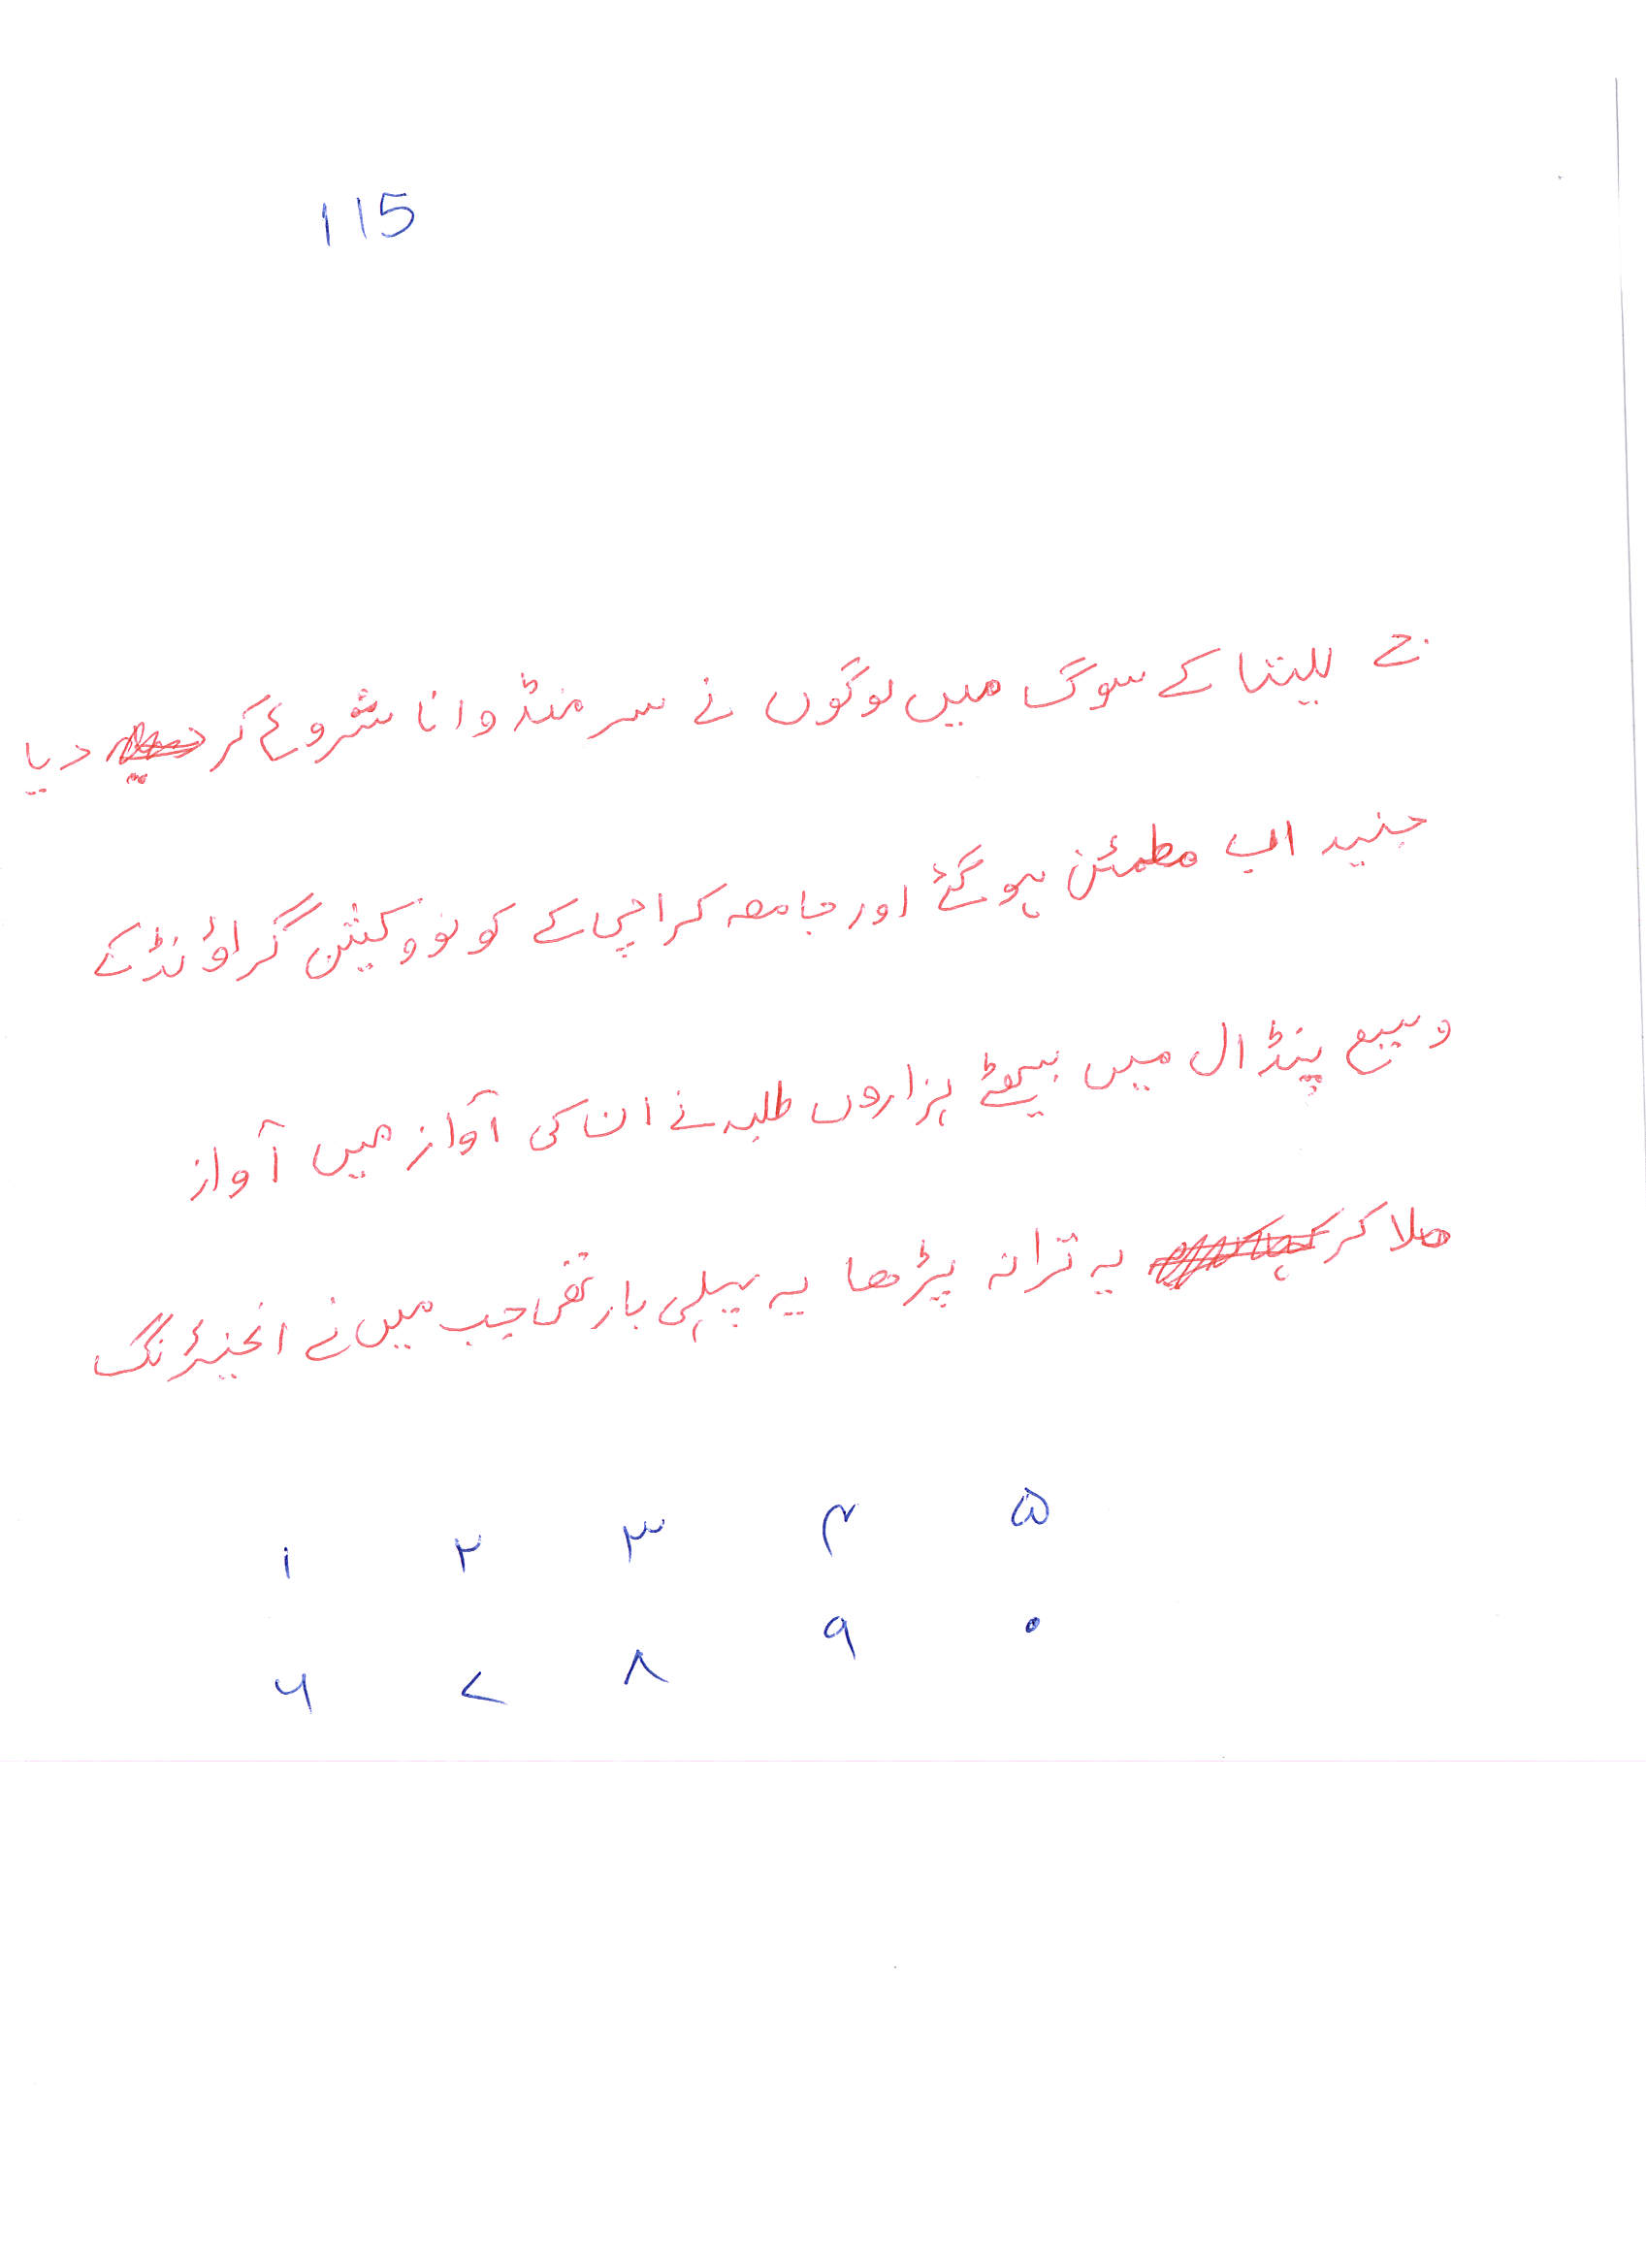 115
جے للیتا کے سوگ میں لوگوں نے سر منڈوانا شروع کر دیا
جنید اب مطمئن ہو گئے اور جامعہ کراچی کے کونووکیشن گراؤنڈ کے
وسیع پنڈال میں بیٹھے ہزاروں طلبہ نے ان کی آواز میں آواز
ملا کر یہ ترانہ پڑھا یہ پہلی بار تھی جب میں نے انجنیئرنگ
۱ ۲ ۳ ۴ ۵
۶ ۷ ۸ ۹ ۰